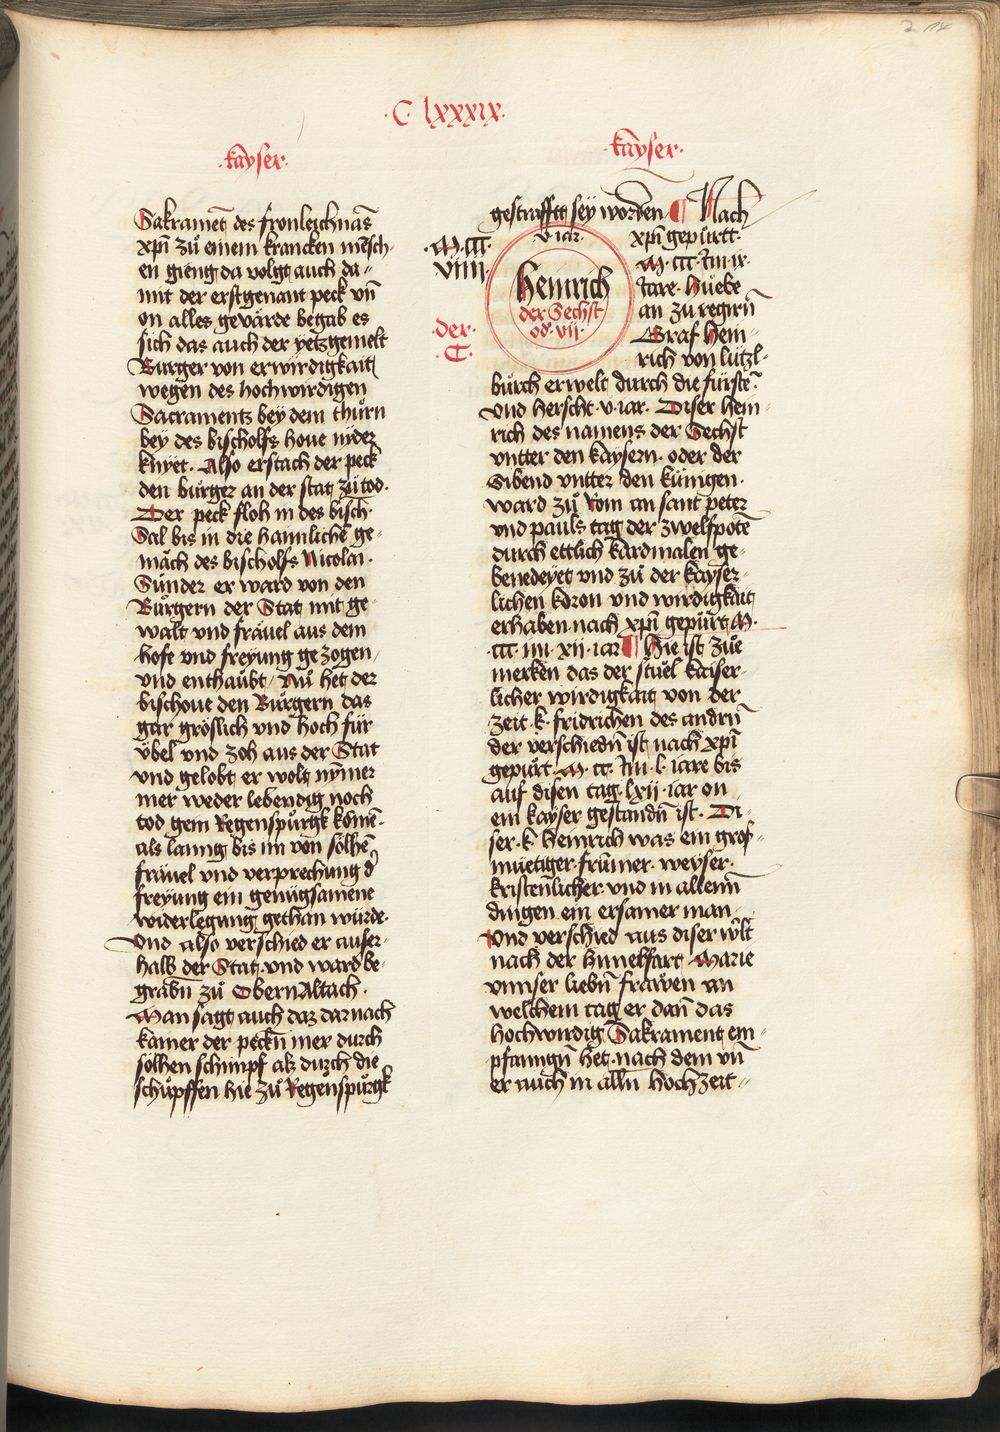 ·C·lxxxix·
·kayser·
Sakramēt des fronleichnās
xp̄i zů einem krancken mēsch-
en gieng da volgt auch da-
mit der erstgenant peck vn̄
on alles gevärde begab es
sich das auch der yetzgemelt
Burger von erwirdigkait
wegen des hochwirdigen
Sacraments bey dem thůrn
bey des bischolfs houe nyder
knyet. Also erstach der peck
den burger an der stat zů tod.
Der peck floh in des bisch-
Sal bis in die haimlichē ge-
mäch des bischolfs Nicolai.
Sunder er ward von den
Burgern der Stat mit ge-
walt vnd fräuel aus dem
hofe vnd freyung gezogen/
vnd enthaubt/ Nů het der
bischoue den Burgern das
gar gröslich vnd hoch für
übel vnd zoh aus der Stat
vnd gelobt er wolt nymer
mer weder lebendig noch
tod gein Regenspurgk komē.
als lanng bis im von sölhē
fräuel vnd verprechung d'
freyung ein genügsamene
widerlegung gethan würde.
Vnd also verschied er ausser-
halb der Stat vnd ward be-
grabn̄ zů Obern Altach.
Man sagt auch daz darnach
kainer der peckn̄ mer durch
sölhen schimpf als durch die
schüpffen hie zů Regenspurgk
·kayser·
gestrafft sey worden ¶ Nach
xp̄i gepürtt.
M·ccc·
viiii·
v·iar·
Heinrich
der Sechst
od' vii·
der·
C·
M·ccc·im·ix·
Jare· Huebe
an zu regirn̄
Graf Hein-
rich von lützl-
bůrch erwelt durch die fürstē.
Vnd herscht·v·iar· Diser hein-
rich des namens der Sechst
vntter den kaysern· oder der
Sibend vntter den künigen·
ward zů Rom an sant peter
vnd pauls tag der zwelfpotē
durch ettlich kardinalen ge-
benedeyet vnd zů der kayser-
lichen koron vnd wirdigkait
erhaben nach xp̄i gepürt M·
·ccc·im·xii·iar ¶ Hie ist züe
mercken das der stuel kaiser-
licher wirdigkait von der
zeit·k·fridrichen des andrn̄
der verschidn̄ ist nach xp̄i
gepürt·M·cc·im·l·iare bis
auf disen tag·lxii·iar on
ein kayser gestandn̄ ist· Di-
ser·k·heinrich was ein grosz-
muetiger·frumer·weyser·
kristenlicher·vnd in allenn̄
dingen ein ersamer man·
Vnd verschied aus diser wlt
nach der himelfart Marie
vnnser liebn̄ frawen an
welchem tag er dan̄ das
hochwirdig Sakrament em-
pfanngn̄ het·nach dem vn̄
er auch in alln̄ hochzeit-